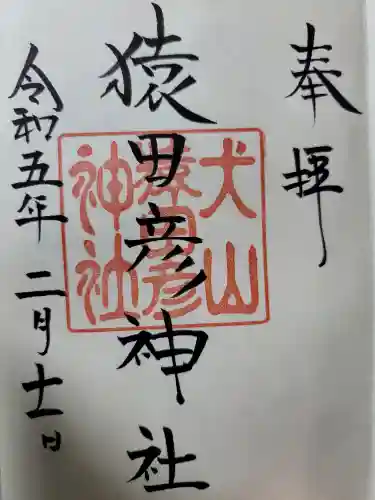 奉拝
猿田彦神社
令和五年二月十一日
犬山
猿田彦
神社